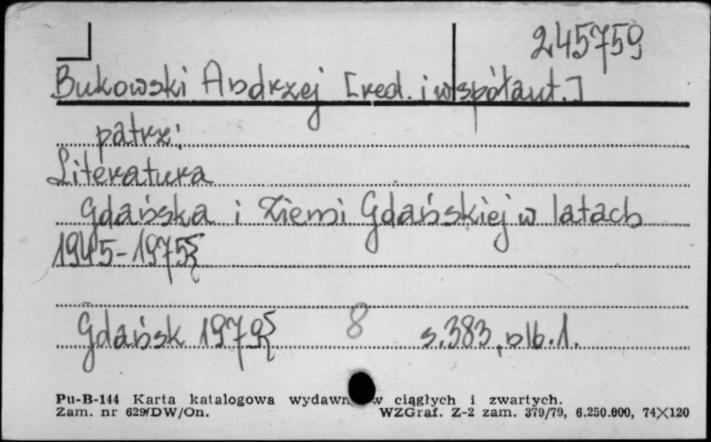 245759
Bukowski Andrzej [red. i współaut.]
patrz:
Literatura
Gdańska i Ziemi Gdańskiej w latach
1945-1975
Gdańsk 1979 8 s. 383, nlb. 1.
Pu-B-144 Karta katalogowa wydawn w ciągłych i zwartych.
Zam. nr 629/DW/On. WZGraf. Z-2 zam. 379/79, 6.250.000, 74×120